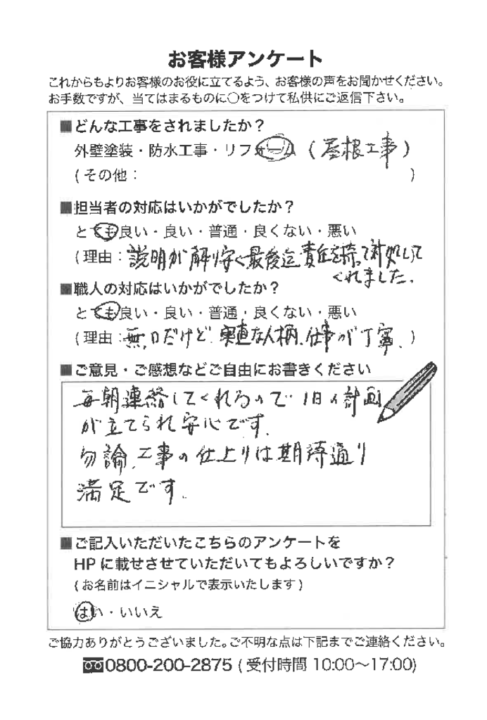 お客様アンケート
これからもよりお客様のお役に立てるよう、お客様の声をお聞かせください。
お手数ですが、当てはまるものに○をつけて私供にご返信下さい。
■どんな工事をされましたか？
外壁塗装・防水工事・リフォーム (屋根工事)
(その他： )
■担当者の対応はいかがでしたか？
とても良い・良い・普通・良くない・悪い
(理由：説明が解り安く最後迄責任を持って対処して
くれました.
■職人の対応はいかがでしたか？
とても良い・良い・普通・良くない・悪い
(理由：無口だけど.実直な人柄.仕事が丁寧.)
■ご意見・ご感想などご自由にお書きください
毎朝連絡してくれるので1日の計画
が立てられ安心です.
勿論.工事の仕上りは期待通り
満足です.
■ご記入いただいたこちらのアンケートを
HPに載せさせていただいてもよろしいですか？
(お名前はイニシャルで表示いたします)
はい・いいえ
ご協力ありがとうございました。ご不明な点は下記までご連絡ください。
0800-200-2875 (受付時間 10:00～17:00)